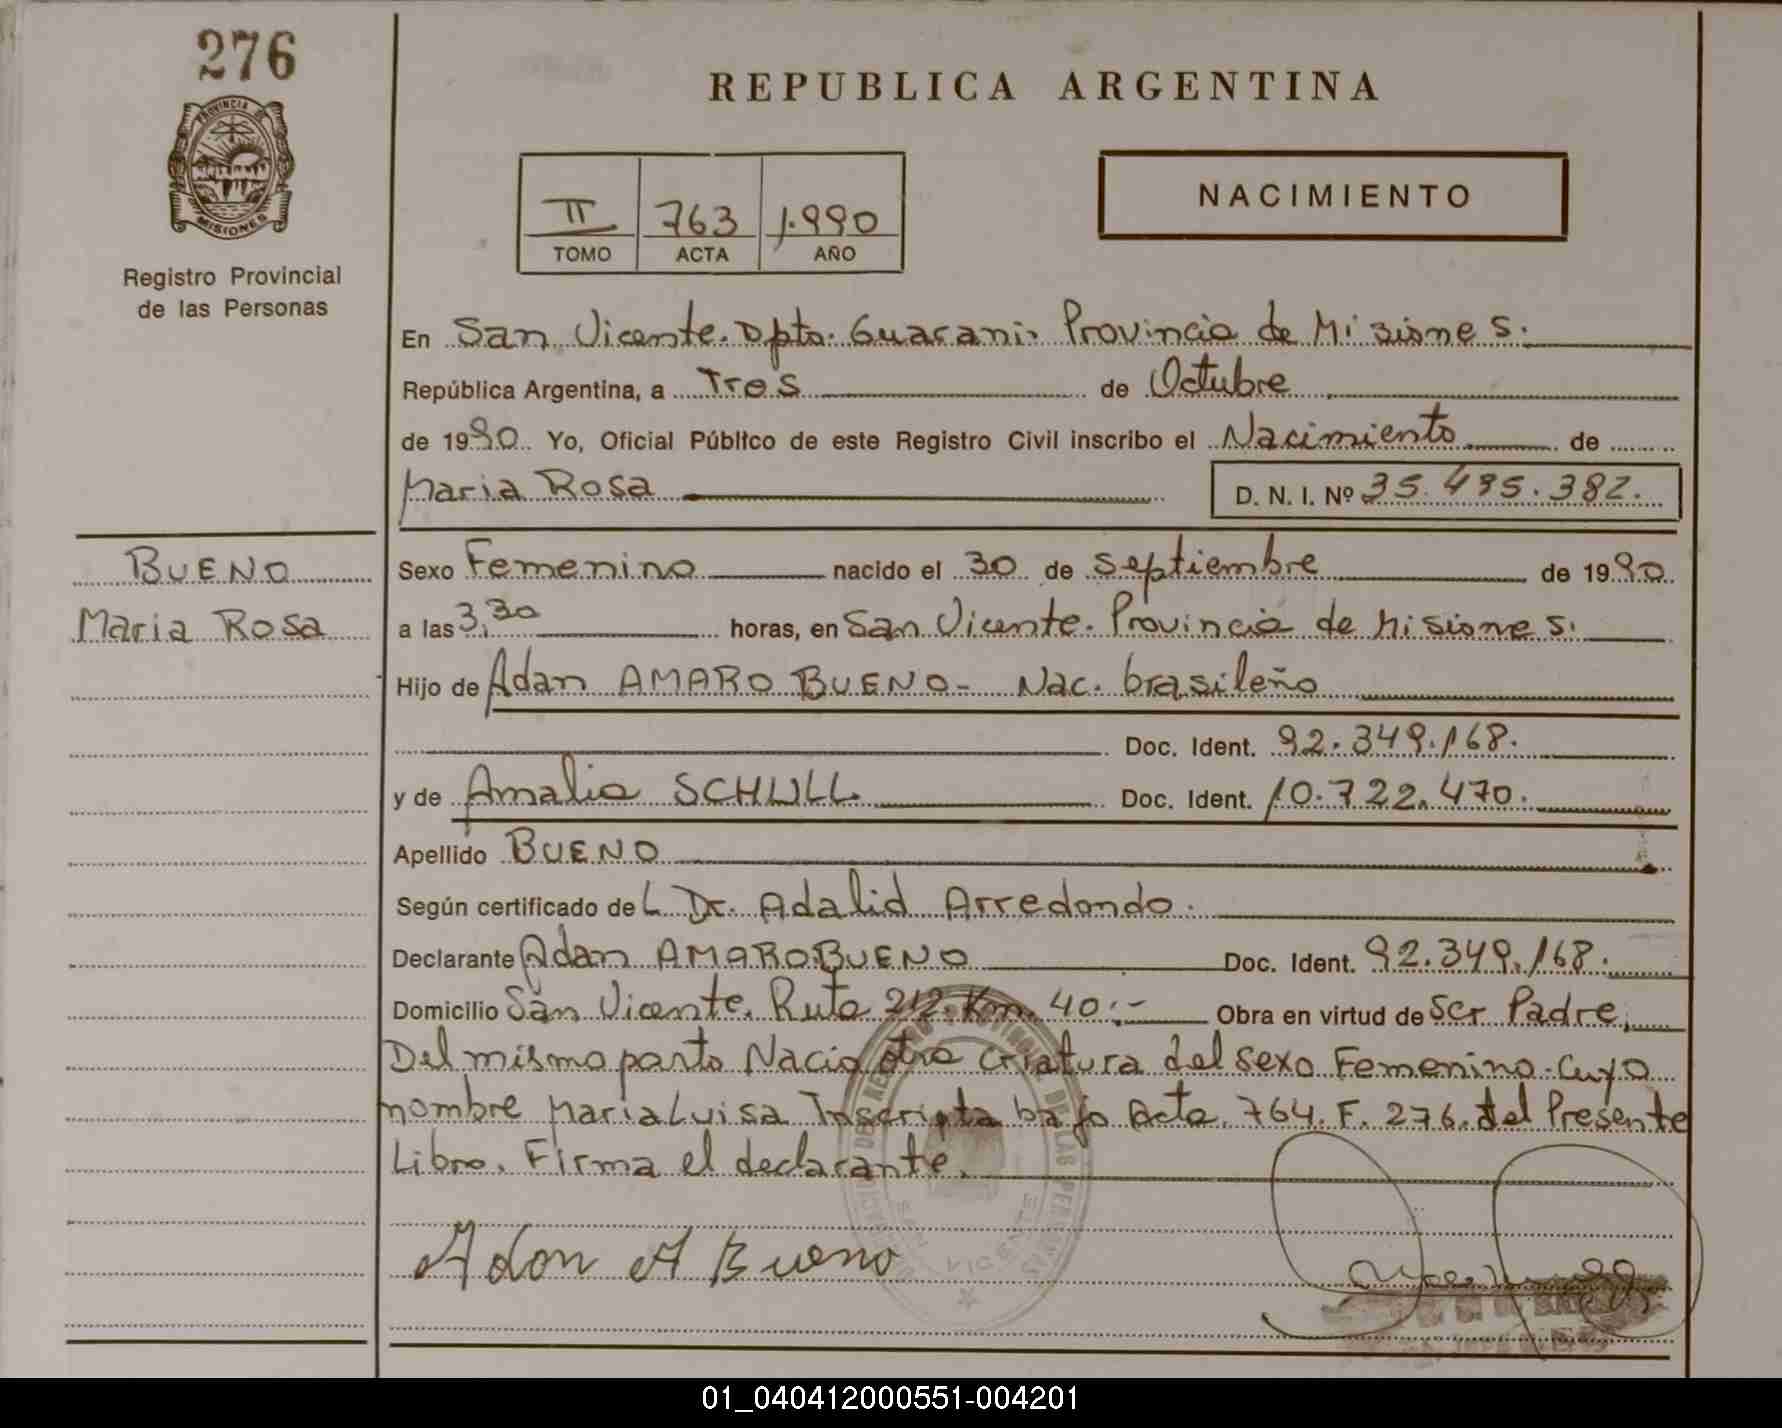 276
PROVINCIA DE
MISIONES
Registro Provincial
de las Personas
REPUBLICA ARGENTINA
II 763 1.990
TOMO ACTA AÑO
NACIMIENTO
En San Vicente. Dpto. Guarani. Provincia de Misiones.
República Argentina, a Tres de Octubre
de 1990. Yo, Oficial Público de este Registro Civil inscribo el Nacimiento de
Maria Rosa D. N. I. Nº 35.495.382.
BUENO
Maria Rosa
Sexo Femenino nacido el 30 de septiembre de 1990
a las 3,30 horas, en San Vicente. Provincia de Misiones.
Hijo de Adan AMARO BUENO- Nac. brasileño
Doc. Ident. 92.349.168.
y de Amalia SCHULL. Doc. Ident. 10.722.470.
Apellido BUENO
Según certificado del Dr. Adalid Arredondo.
Declarante Adan AMARO BUENO Doc. Ident. 92.349.168.
Domicilio San Vicente. Ruta 212. Km. 40:- Obra en virtud de Ser Padre,
Del mismo parto Nacio otra criatura del sexo Femenino. Cuyo
nombre Maria Luisa Inscripta bajo Acta. 764. F. 276. del Presente
Libro. Firma el declarante.
Adan A Bueno
VICENTE
01_040412000551-004201